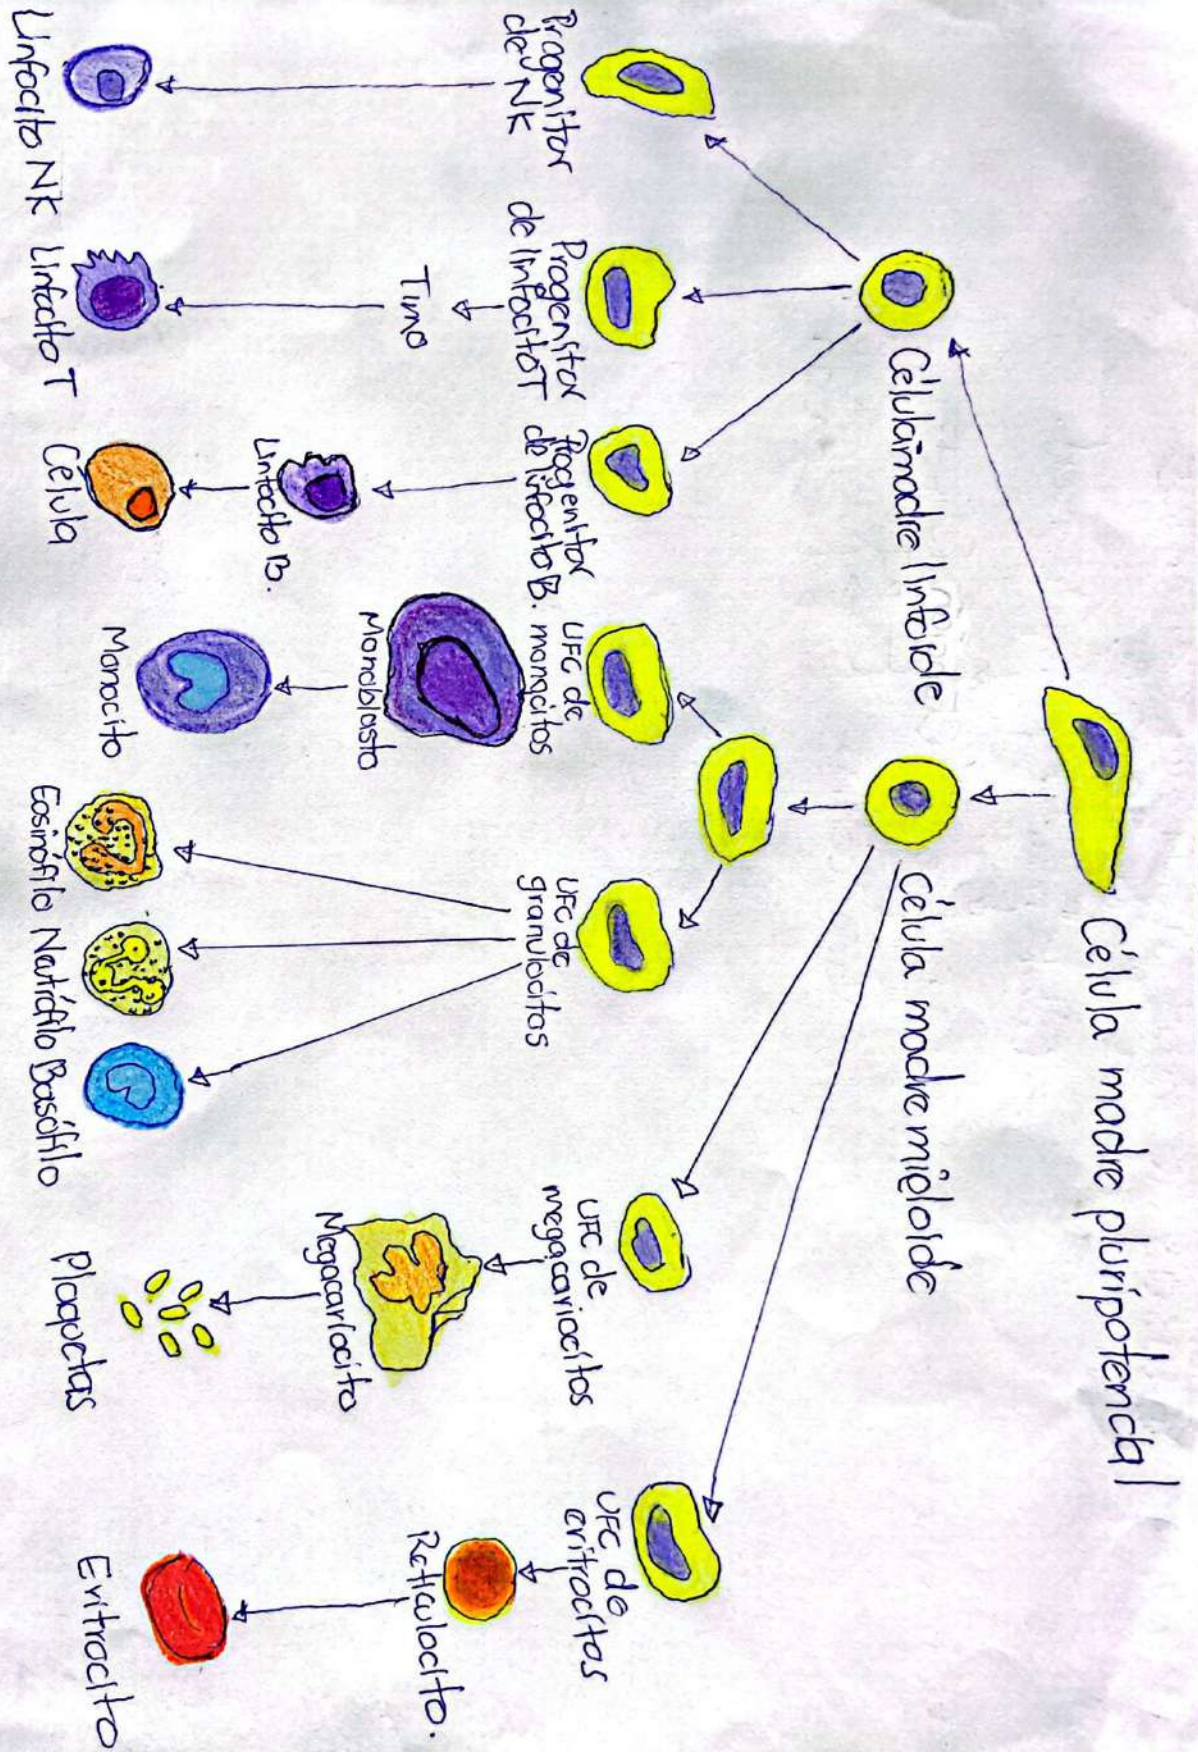 Célula madre pluripotencial
Célula madre linfoide
Célula madre mieloide
Progenitor
de NK
Progenitor
de linfocito T
Progenitor
de linfocito B.
UFC de
monocitos
UFC de
granulocitos
UFC de
megacariocitos
UFC de
eritrocitos
Timo
Linfocito B.
Monoblasto
Megacariocito
Reticulocito.
Linfocito NK
Linfocito T
Célula
Monocito
Eosinófilo
Neutrófilo
Basófilo
Plaquetas
Eritrocito